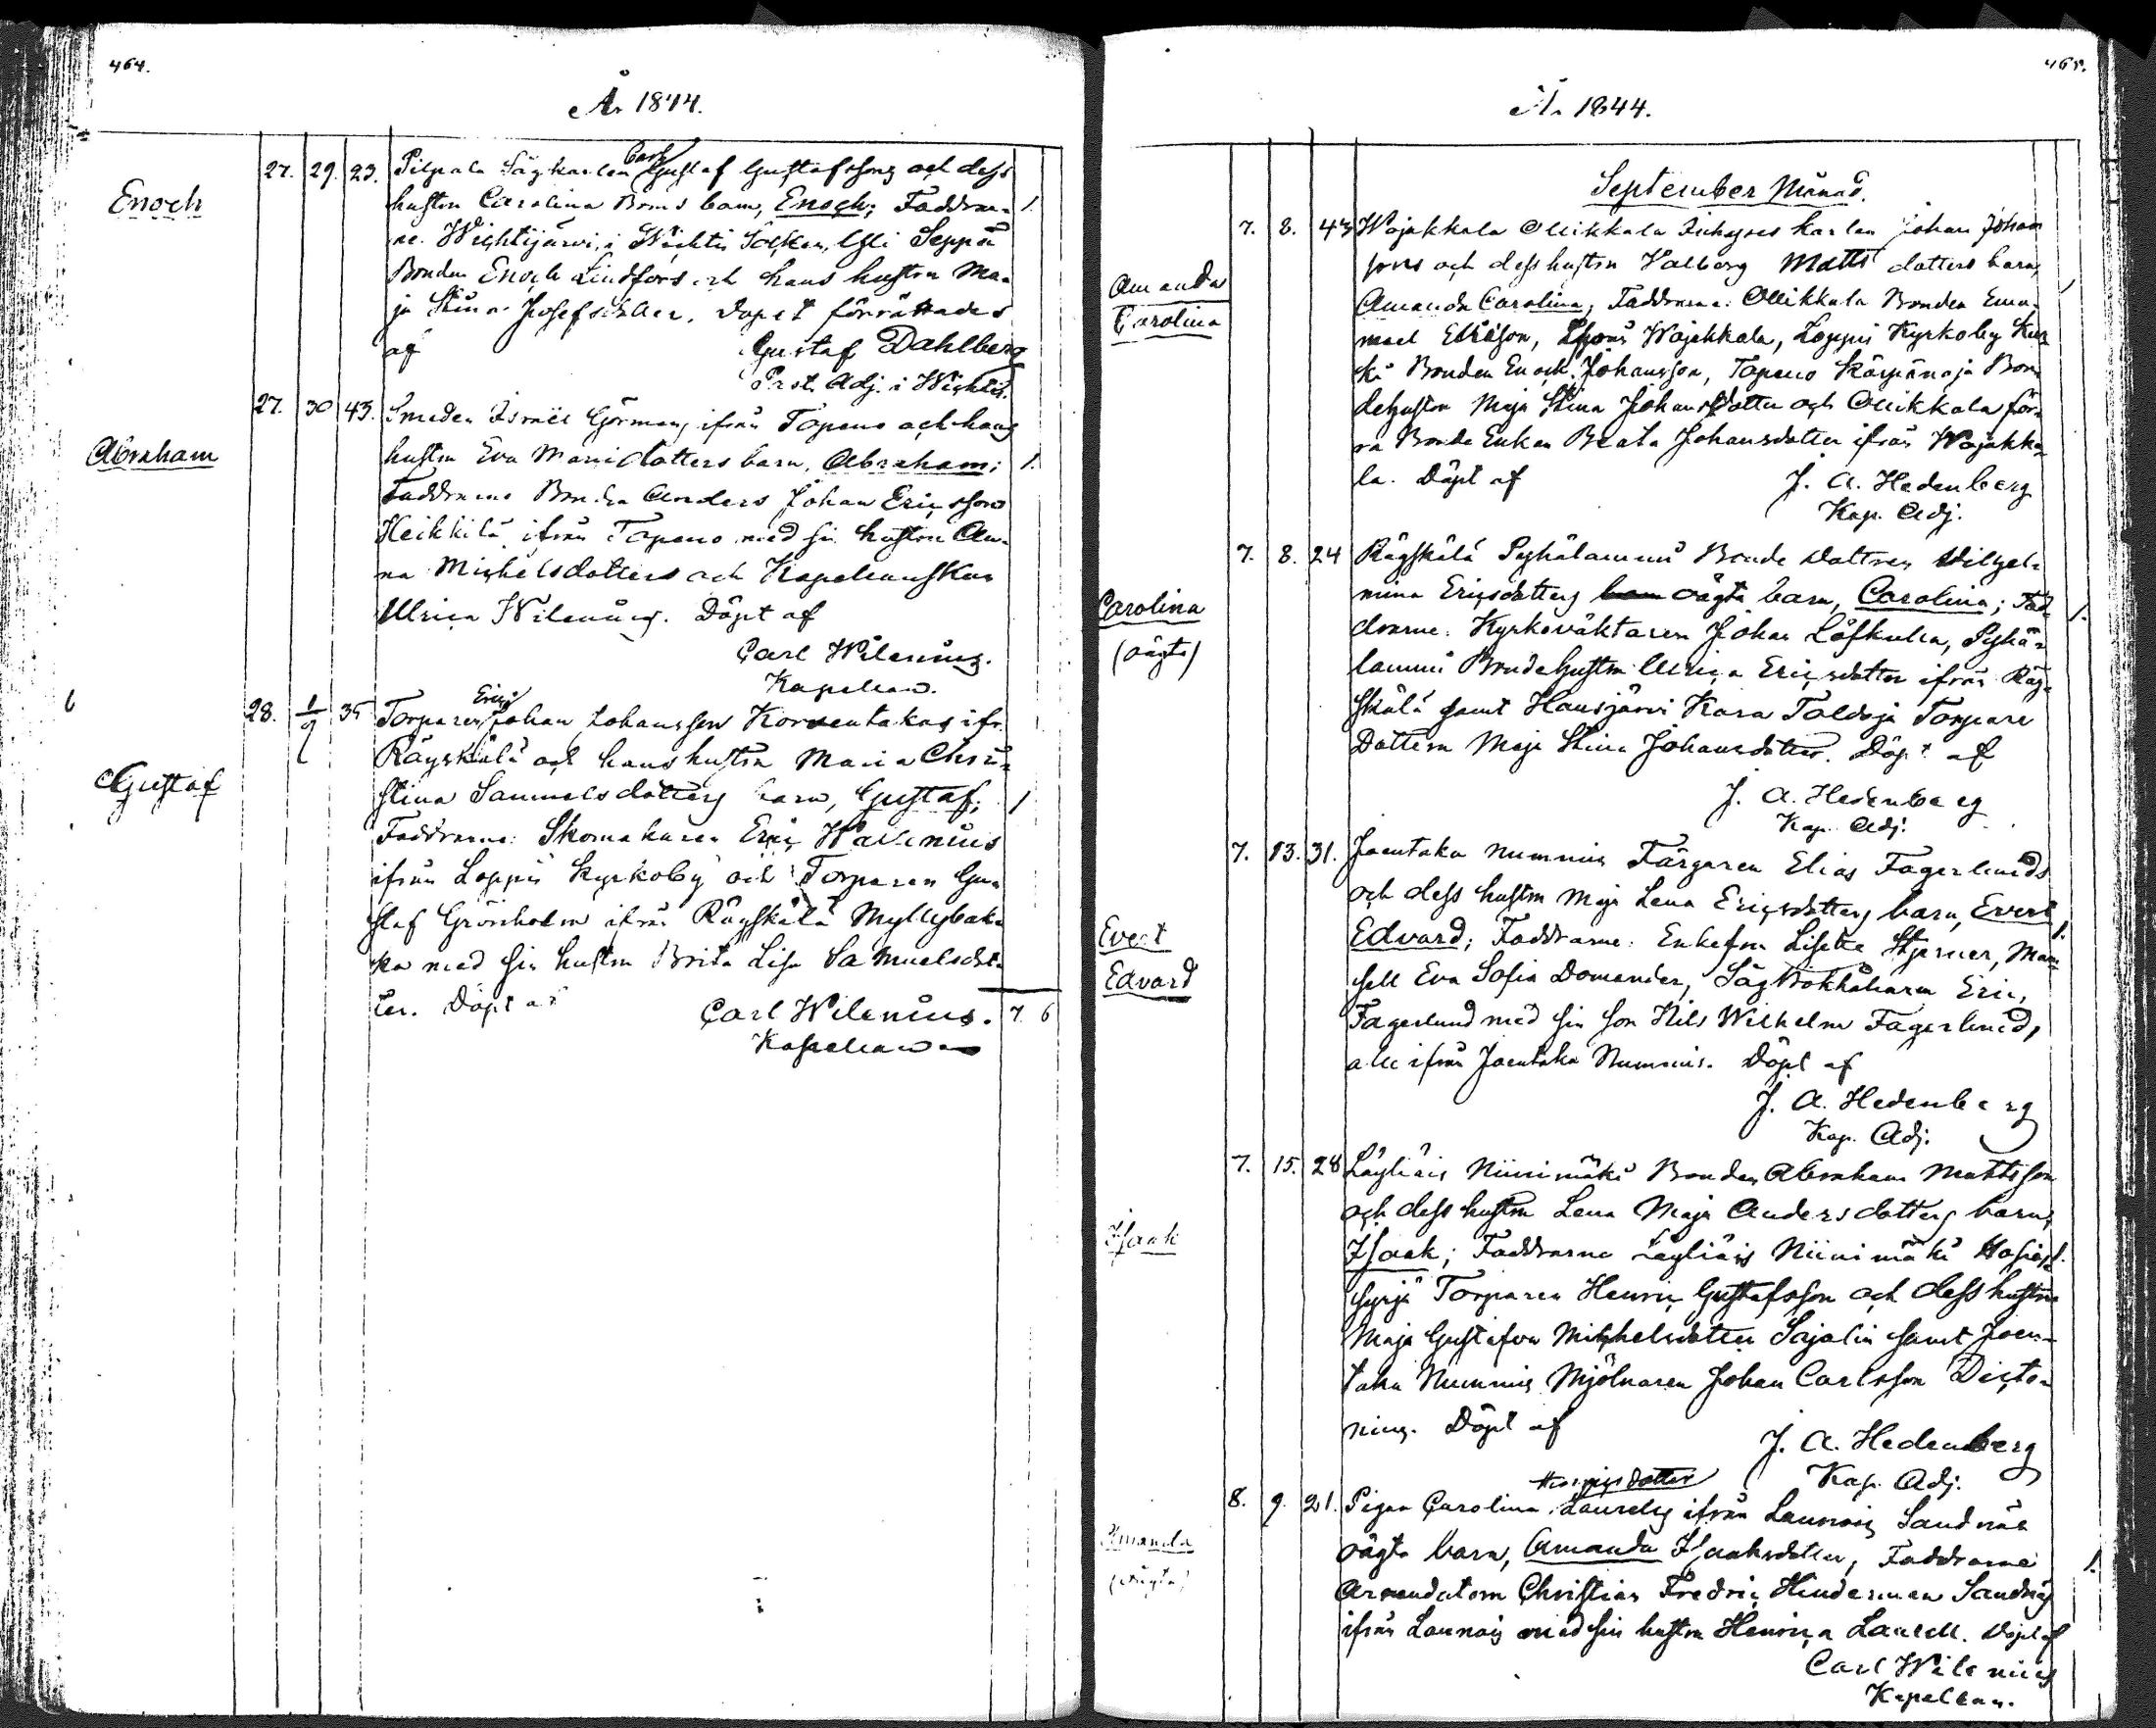 464.
År 1844.
Enoch
27. 29. 23. Pilpala Sågkarlen Carl Gustaf Gustafssons och dess
hustru Carolina Broms barn, Enoch; Faddrar- 1.
ne. Wichtijärvi, i Wichtis Socken, Seppä
Bonden Enoch Lindfors och hans hustru Ma-
ja Stina Josefsdotter. Dopet förrättades
af Gustaf Dahlberg
Past. Adj. i Wichtis.
Abraham
27. 30 43. Smeden Israel Görmans ifrån Topeno och hans
hustru Eva Mariadotters barn, Abraham; 1.
Faddrarne Bonden Anders Johan Ericsson
Heikkilä ifrån Topeno med sin hustru An-
na Michelsdotter och Kapellanskan
Ulrica Wilenius. Döpt af
Carl Wilenius.
Kapellan.
6
Gustaf
28. 1/9 35 Torparen Eric Johan Johansson Korventakas ifr.
Räyskälä och hans hustru Maria Chri-
stina Samuelsdotters barn, Gustaf; 1
Faddrarne: Skomakaren Eric Walenius
ifrån Loppis Kyrkoby och Torparen Gu-
staf Grönholm ifrån Räyskälä Myllybak-
ka med sin hustru Brita Lisa Samuelsdot-
ter. Döpt af Carl Wilenius. 7 6
Kapellan
465.
År 1844.
September Månad.
Amanda
Carolina
7. 8. 43 Wojakkala Ollikkala karlen Johan Johans
sons och dess hustru Valborg Mattsdotters barn,
Amanda Carolina; Faddrarne: Ollikkala Bonden Ema-
nuel Wojakkala, Loppis Kyrkoby Kur-
ki Bonden Enoch Johansson, Topeno Käspänoja Bon-
dehustrun Maja Stina Johansdotter och Ollikkala för-
ra Bonde Enkan Beata Johansdotter ifrån Wojakka-
la. Döpt af J. A. Hedenberg
Kap. Adj.
Carolina
(oägta)
7. 8. 24 Räyskälä Pyhälammi Bonde Dottren Wilhel-
mina Ericsdotters oägta barn, Carolina; Fad- 1.
drarne: Kyrkoväktaren Johan Löfkulla, Pyhä-
lammi Bondehustrun Ulrica Ericsdotter ifrån Räy-
skälä samt Hausjärvi Kara Toldoja Torpare
Dottern Maja Stina Johansdotter. Döpt af
J. A. Hedenberg
Kap. Adj.
Evert
Edvard
7. 13. 31. Joentaka Nummis Färgaren Elias Fagerlunds
och dess hustru Maja Lena Ericsdotters barn, Evert
Edvard; Faddrarne: Enkefru Lisette Stjerner, Mam- 1.
sell Eva Sofia Domander, Såg Bokhållaren Eric
Fagerlund med sin son Nils Wilhelm Fagerlund,
alle ifrån Joentaka Nummis. Döpt af
J. A. Hedenberg
Kap. Adj.
Isaak
7. 15. 28 Läyliäis Niinimäki Bonden Abraham Mattsson
och dess hustru Lena Maja Andersdotters barn,
Isaak; Faddrarne Läyliäis Niinimäki 1.
Torparen Henric Gustafsson och dess hustru
Maja Gustafva Michelsdotter Sajalin samt Joen-
taka Nummis Mjölnaren Johan Carlsson Dicto-
nius. Döpt af J. A. Hedenberg
Kap. Adj.
Amanda
(oägta)
8. 9. 21. Pigan Carolina Henricsdotter Laurells ifrån Launois Sandnäs
oägta barn, Amanda Isaaksdotter, Faddrarne 1.
Arrendatorn Christian Fredric Hinderman Sandnäs
ifrån Launois med sin hustru Henrica Laurell. Döpt af
Carl Wilenius
Kapellan.